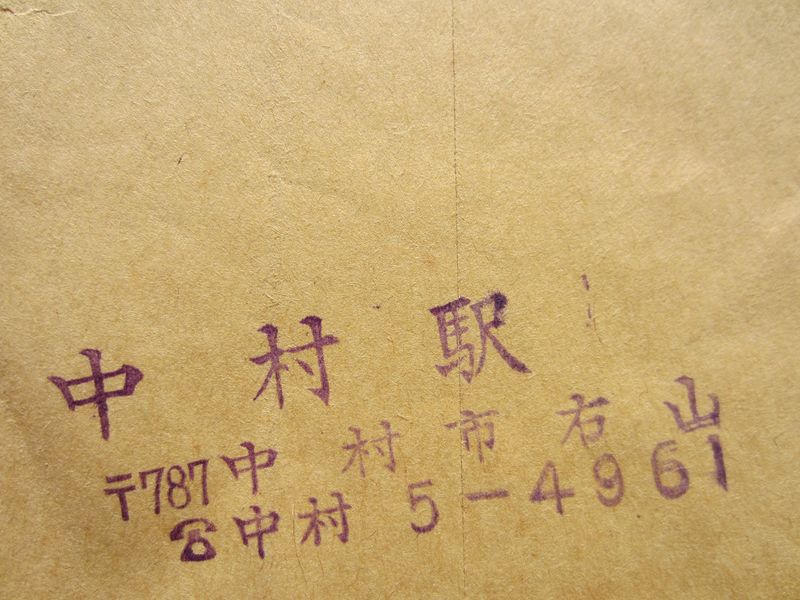 中村駅
〒787中村市右山
☎中村 5-4961